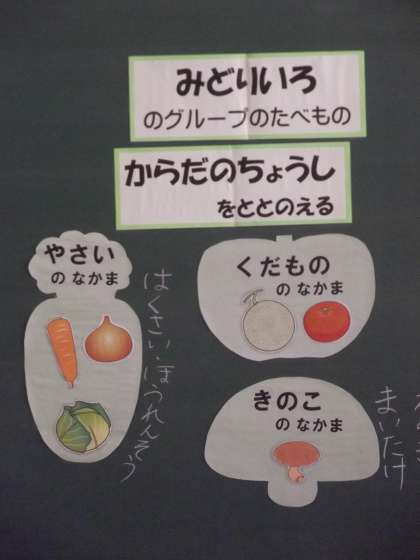 みどりいろ
のグループのたべもの
からだのちょうし
をととのえる
やさい
のなかま
はくさい・ほうれんそう
くだもの
のなかま
きのこ
のなかま
まいたけ